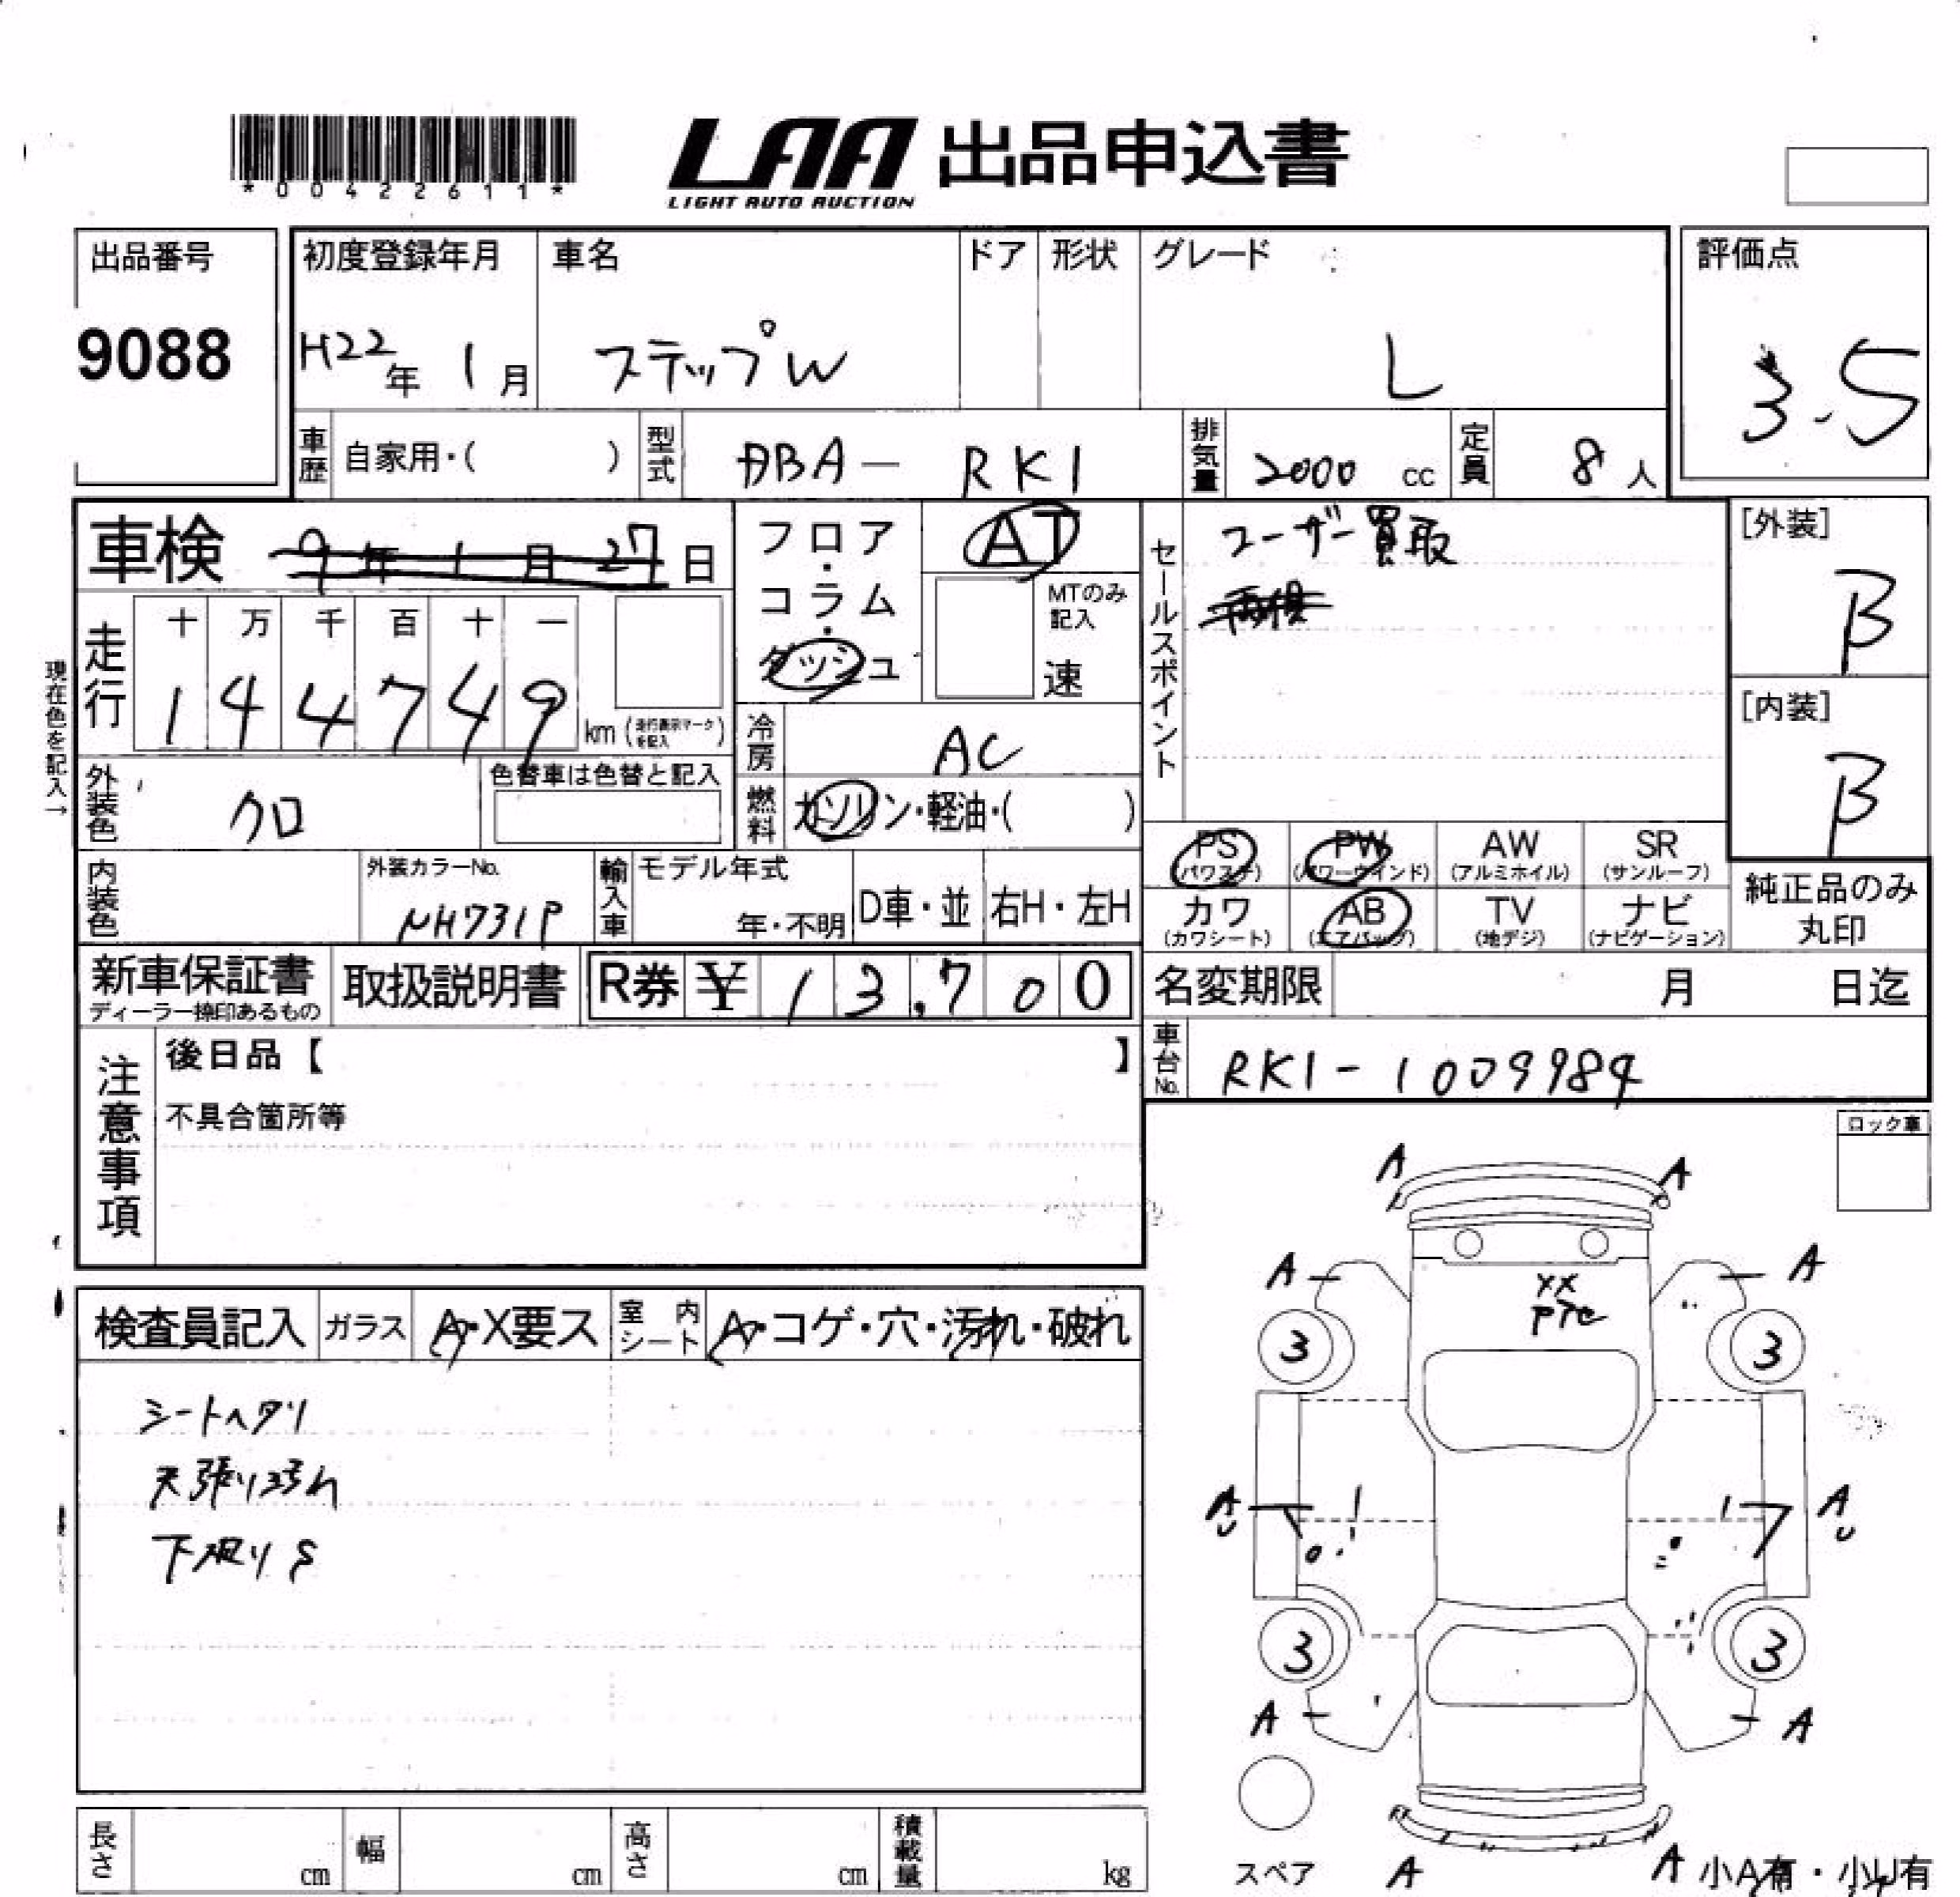 *00422611*
LAA 出品申込書
LIGHT AUTO AUCTION
出品番号
9088
初度登録年月
H22年 1月
車名
ステップW
ドア
形状
グレード
L
評価点
3.5
車歴 自家用・( )
型式 DBA- RK1
排気量 2000 cc
定員 8 人
車検 9年 1月 27日
フロア・コラム・ダッシュ
AT
MTのみ記入
速
セールスポイント
ユーザー買取
[外装]
B
[内装]
B
現在色を記入→
走行
十 万 千 百 十 一
1 4 4 7 4 9
km (走行表示マークを記入)
冷房 AC
外装色 クロ
色替車は色替と記入
燃料 ガソリン・軽油・( )
PS (パワステ)
PW (パワーウインド)
AW (アルミホイル)
SR (サンルーフ)
カワ (カワシート)
AB (エアバッグ)
TV (地デジ)
ナビ (ナビゲーション)
純正品のみ
丸印
内装色
外装カラーNo.
NH731P
輸入車
モデル年式
年・不明
D車・並
右H・左H
新車保証書
ディーラー捺印あるもの
取扱説明書
R券 ¥ 13,700
名変期限 月 日迄
車台No. RK1-1009984
注意事項
後日品【 】
不具合箇所等
ロック車
検査員記入
ガラス A・X要ス
室内シート A・コゲ・穴・汚れ・破れ
シートヘタリ
天張り汚れ
下廻りS
A A
A A
XX
3 3
A A
U U
3 3
A A
スペア
A A
小A有・小U有
長さ cm
幅 cm
高さ cm
積載量 kg